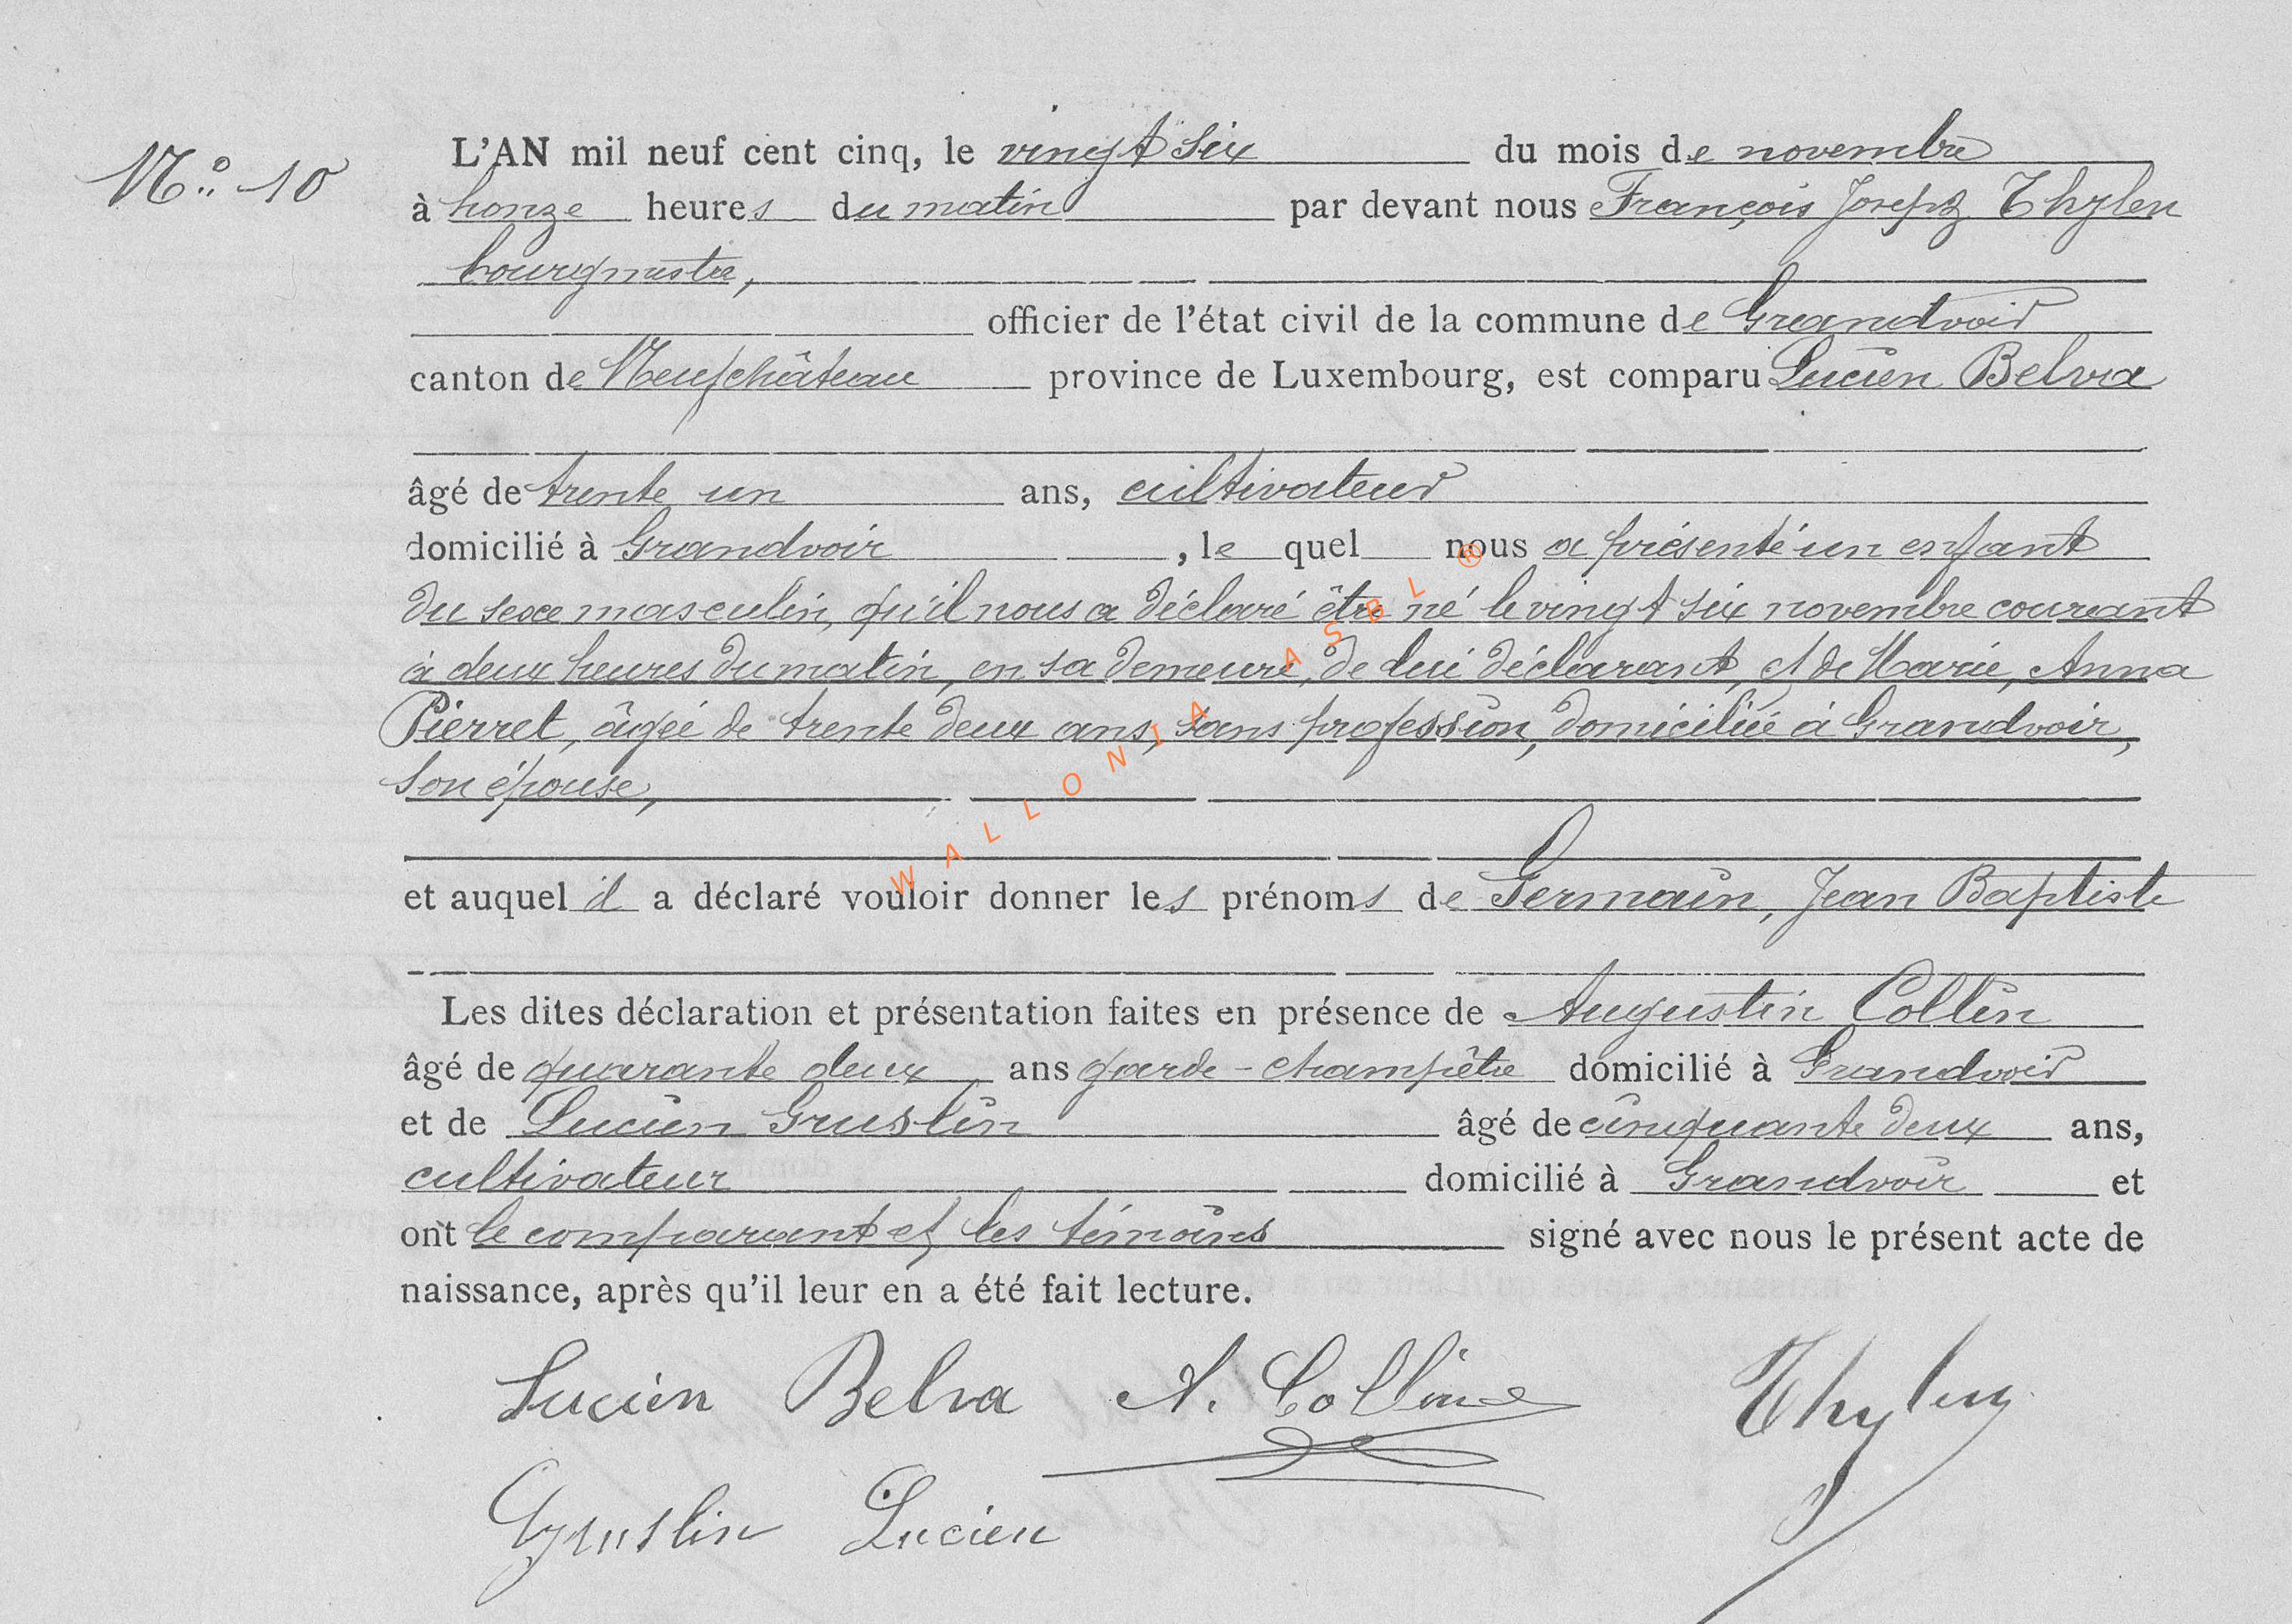 N.º 10
L'AN mil neuf cent cinq, le vingt six du mois de novembre
à honze heures du matin par devant nous François Joseph Thylen
bourgmestre,
officier de l'état civil de la commune de Grandvoir
canton de Neufchâteau province de Luxembourg, est comparu Lucien Belva
âgé de trente un ans, cultivateur
domicilié à Grandvoir , le quel nous a présenté un enfant
du sexe masculin, qu'il nous a déclaré être né le vingt six novembre courant
à deux heures du matin, en sa demeure, de lui déclarant, et de Marie, Anna
Pierret, âgée de trente deux ans, sans profession, domiciliée à Grandvoir,
son épouse,
et auquel il a déclaré vouloir donner les prénoms de Germain, Jean Baptiste
Les dites déclaration et présentation faites en présence de Augustin Collin
âgé de quarante deux ans garde-champêtre domicilié à Grandvoir
et de Lucien Gruslin âgé de cinquante deux ans,
cultivateur domicilié à Grandvoir et
ont le comparant et les témoins signé avec nous le présent acte de
naissance, après qu'il leur en a été fait lecture.
Lucien Belva A. Collin Thylen
Gruslin Lucien
WALLONIA ASBL ®